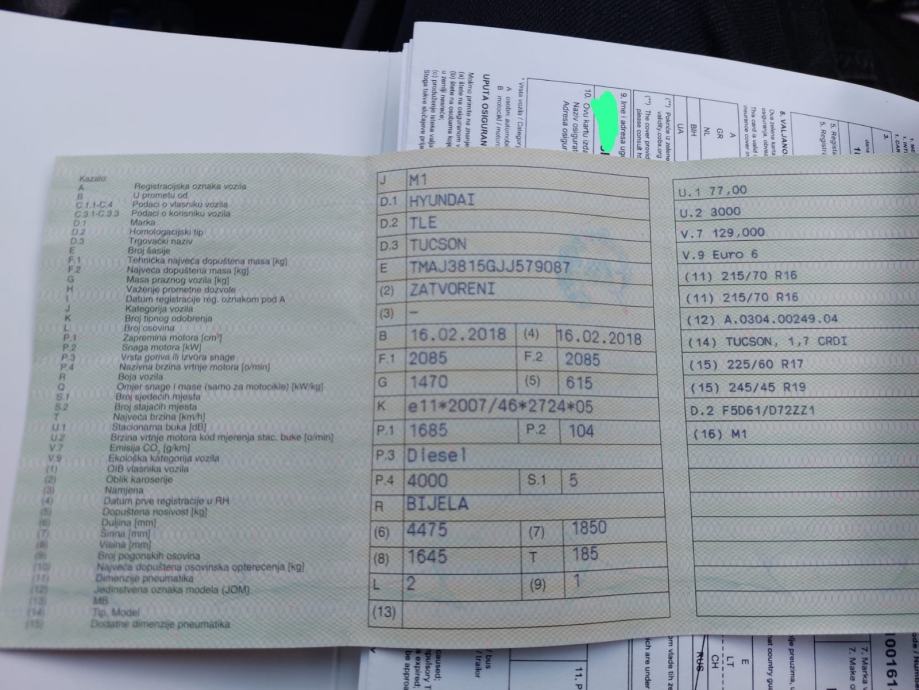 Kazalo:
A Registracijska oznaka vozila
B U prometu od
C.1.1-C.4 Podaci o vlasniku vozila
C.3.1-C.3.3 Podaci o korisniku vozila
D.1 Marka
D.2 Homologacijski tip
D.3 Trgovački naziv
E Broj šasije
F.1 Tehnička najveća dopuštena masa [kg]
F.2 Najveća dopuštena masa [kg]
G Masa praznog vozila [kg]
H Važenje prometne dozvole
I Datum registracije reg. oznakom pod A
J Kategorija vozila
K Broj tipnog odobrenja
L Broj osovina
P.1 Zapremina motora [cm³]
P.2 Snaga motora [kW]
P.3 Vrsta goriva ili izvora snage
P.4 Nazivna brzina vrtnje motora [o/min]
R Boja vozila
Q Omjer snage i mase (samo za motocikle) [kW/kg]
S.1 Broj sjedećih mjesta
S.2 Broj stajaćih mjesta
T Najveća brzina [km/h]
U.1 Stacionarna buka [dB]
U.2 Brzina vrtnje motora kod mjerenja stac. buke [o/min]
V.7 Emisija CO₂ [g/km]
V.9 Ekološka kategorija vozila
(1) OIB vlasnika vozila
(2) Oblik karoserije
(3) Namjena
(4) Datum prve registracije u RH
(5) Dopuštena nosivost [kg]
(6) Duljina [mm]
(7) Širina [mm]
(8) Visina [mm]
(9) Broj pogonskih osovina
(10) Najveća dopuštena osovinska opterećenja [kg]
(11) Dimenzije pneumatika
(12) Jedinstvena oznaka modela (JOM)
(13) MB
(14) Tip, Model
(15) Dodatne dimenzije pneumatika
J M1
D.1 HYUNDAI
D.2 TLE
D.3 TUCSON
E TMAJ3815GJJ579087
(2) ZATVORENI
(3) –
B 16.02.2018 (4) 16.02.2018
F.1 2085 F.2 2085
G 1470 (5) 615
K e11*2007/46*2724*05
P.1 1685 P.2 104
P.3 Diesel
P.4 4000 S.1 5
R BIJELA
(6) 4475 (7) 1850
(8) 1645 T 185
L 2 (9) 1
(13)
U.1 77,00
U.2 3000
V.7 129,000
V.9 Euro 6
(11) 215/70 R16
(11) 215/70 R16
(12) A.0304.00249.04
(14) TUCSON, 1,7 CRDI
(15) 225/60 R17
(15) 245/45 R19
D.2 F5D61/D72ZZ1
(16) M1
UPUTA OSIGURAN
9. Ime i adresa
10. Ovu kartu
Adresa osigur
8. VALJANO
A
GR
NL
BIH
UA
RUS
CH
LT
E
11. P
7. Marka
7. Make